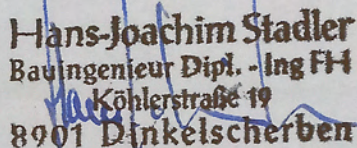 Hans-Joachim Stadler
Bauingenieur Dipl.-Ing FH
Köhlerstraße 19
8901 Dinkelscherben